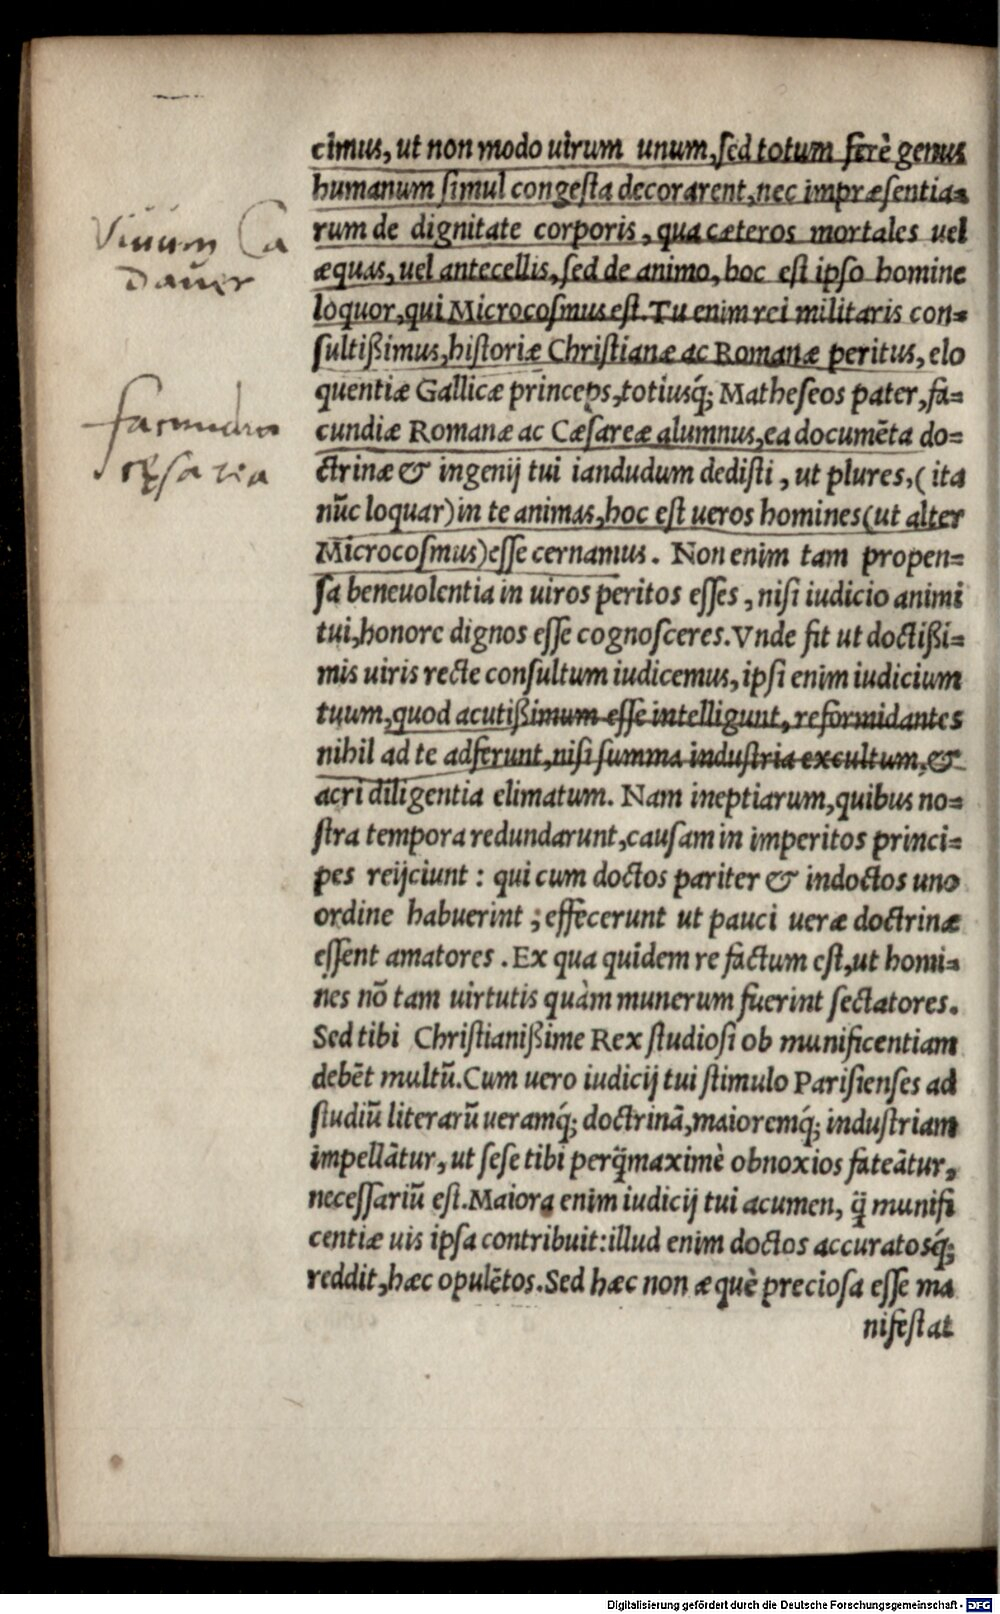 cimus, ut non modo uirum unum, sed totum ferè genus
humanum simul congesta decorarent, nec impræsentia=
rum de dignitate corporis, qua cæteros mortales uel
æquas, uel antecellis, sed de animo, hoc est ipso homine
loquor, qui Microcosmus est. Tu enim rei militaris con=
sultißimus, historiæ Christianæ ac Romanæ peritus, elo
quentiæ Gallicæ princeps, totiusq́; Matheseos pater, fa=
cundiæ Romanæ ac Cæsareæ alumnus, ea documēta do=
ctrinæ & ingenij tui iandudum dedisti, ut plures, (ita
nūc loquar) in te animas, hoc est ueros homines (ut alter
Microcosmus) esse cernamus. Non enim tam propen=
sa beneuolentia in uiros peritos esses, nisi iudicio animi
tui, honore dignos esse cognosceres. Vnde fit ut doctißi=
mis uiris recte consultum iudicemus, ipsi enim iudicium
tuum, quod acutißimum esse intelligunt, reformidantes
nihil ad te adferunt, nisi summa industria excultum, &
acri diligentia elimatum. Nam ineptiarum, quibus no=
stra tempora redundarunt, causam in imperitos princi=
pes reijciunt: qui cum doctos pariter & indoctos uno
ordine habuerint; effecerunt ut pauci ueræ doctrinæ
essent amatores. Ex qua quidem re factum est, ut homi=
nes nō tam uirtutis quàm munerum fuerint sectatores.
Sed tibi Christianißime Rex studiosi ob munificentiam
debēt multū. Cum uero iudicij tui stimulo Parisienses ad
studiū literarū ueramq́; doctrinā, maioremq́; industriam
impellātur, ut sese tibi perq̃maximè obnoxios fateātur,
necessariū est. Maiora enim iudicij tui acumen, q̃ munifi
centiæ uis ipsa contribuit: illud enim doctos accuratosq́;
reddit, hæc opulētos. Sed hæc non æquè preciosa esse ma
nifestat
Viuum Ca
dauer